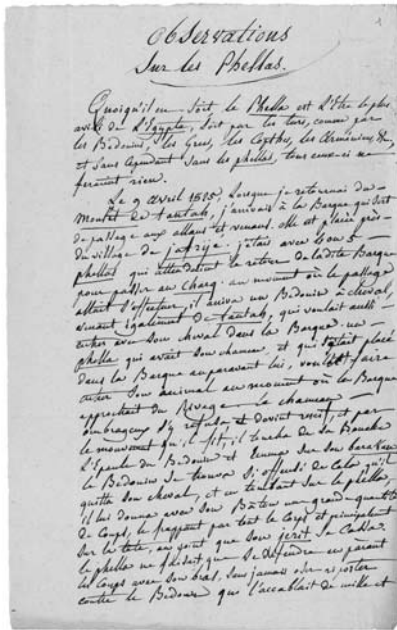 1
Observations
Sur les Phellas.
Quoiqu'il en Soit le Phella est L'être le plus
avili de L'Egypte, Soit par les turs, comme par
les Bedouins, les Grecs, les Cophtes, les Arméniens, &c,
et Sans Cependant Sans les phellas, tous ceux-ci ne
feraient rien.
Le 9 avril 1805, Lorsque je retournai du
Montet de tantah, j'arrivai à la Barque qui Sert
de passage aux allans et venans. elle est placée près
du village de jafrijé. j'étais avec 4 ou 5
phellas qui attendaient le retour de ladite Barque
pour passer au Charq. au moment où le passage
allait S'effectuer, il arriva un Bedouin à cheval,
venant également de tantah, qui voulait aussi
entrer avec Son cheval dans la Barque. un
phella qui avait Son chameau et qui s'était placé
dans la Barque auparavant lui, voulut faire
Son animal au moment où la Barque
approchait du Rivage. le chameau
ombrageux S'y refusa et devint et par
le mouvement qu'il fit, il toucha de Sa Bouche
L'Epaule du Bedouin et Sur Son
le Bedouin Se trouva Si offensé de Cela qu'il
quitta Son cheval, et en tombant Sur le phella,
il lui donna avec Son Bâton une grande quantité
de Coups, le frappant par tout le Corps et principalement
Sur la tête, au point que Son jerit Se Cassa.
le phella ne faisait que Se défendre en parant
les Coups avec Son bras, Sans jamais oser riposter
contre le Bedouin qui L'accablait de mille et